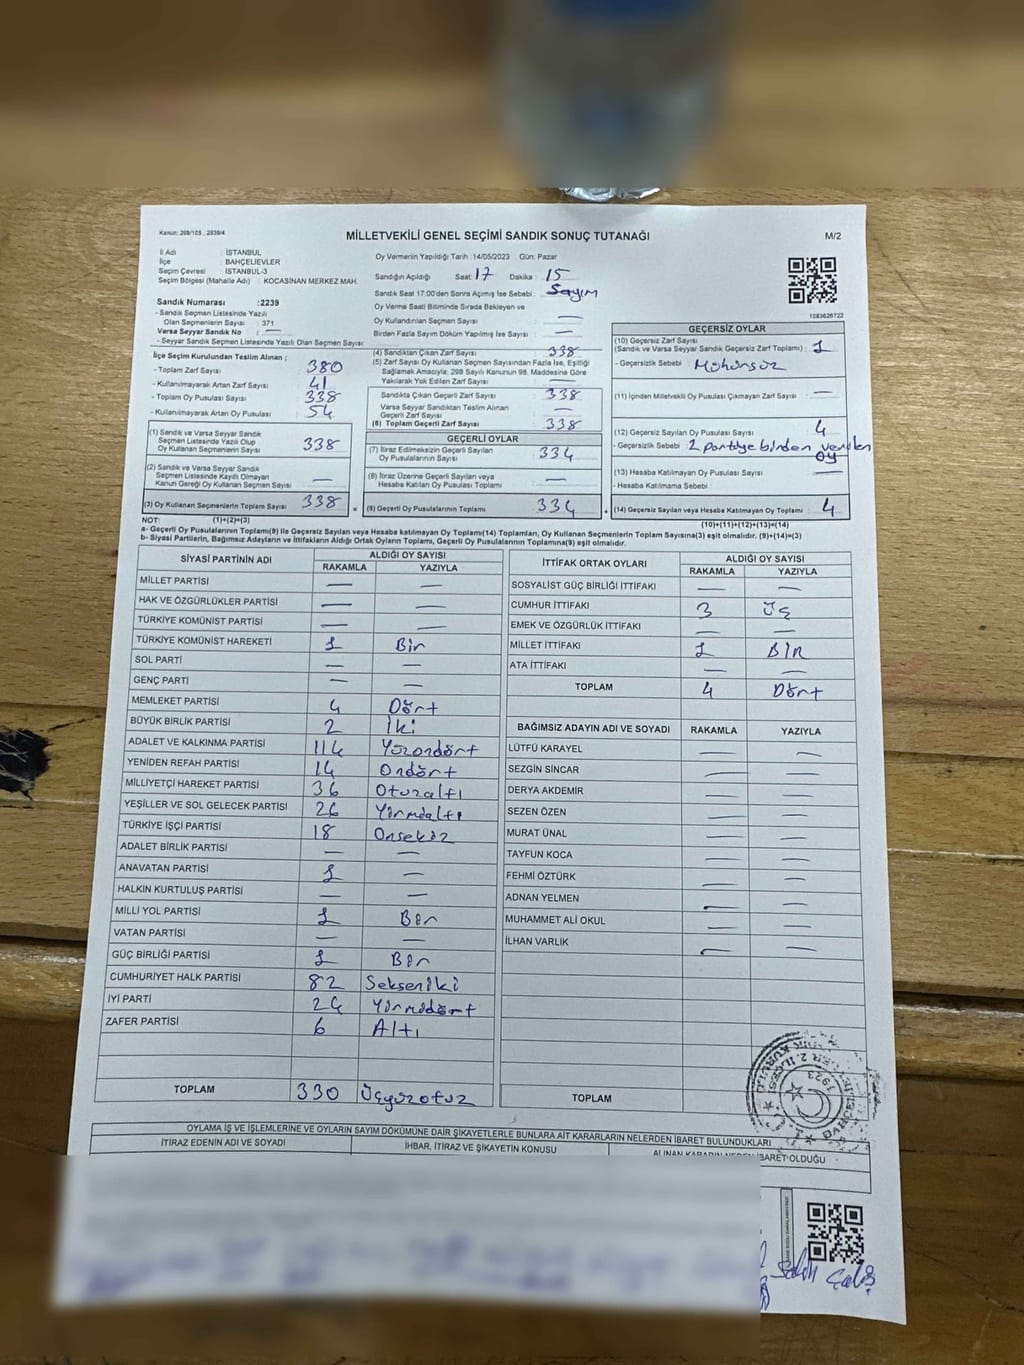 Kanun: 298/105 , 2839/4
MİLLETVEKİLİ GENEL SEÇİMİ SANDIK SONUÇ TUTANAĞI
M/2
İl Adı : İSTANBUL
İlçe : BAHÇELİEVLER
Seçim Çevresi : İSTANBUL-3
Seçim Bölgesi (Mahalle Adı) : KOCASİNAN MERKEZ MAH.
Oy Vermenin Yapıldığı Tarih :14/05/2023 Gün: Pazar
Sandığın Açıldığı Saat: 17 Dakika : 15
Sandık Saat 17:00'den Sonra Açımış İse Sebebi : Sayım
Oy Verme Saati Bitiminde Sırada Bekleyen ve
Oy Kullandırılan Seçmen Sayısı : —
Birden Fazla Sayım Döküm Yapılmış İse Sayısı : —
1083626722
Sandık Numarası :2239
- Sandık Seçmen Listesinde Yazılı
Olan Seçmenlerin Sayısı : 371
Varsa Seyyar Sandık No : —
- Seyyar Sandık Seçmen Listesinde Yazılı Olan Seçmen Sayısı:
İlçe Seçim Kurulundan Teslim Alınan ;
- Toplam Zarf Sayısı : 380
- Kullanılmayarak Artan Zarf Sayısı : 41
- Toplam Oy Pusulası Sayısı : 338
- Kullanılmayarak Artan Oy Pusulası : 54
(4) Sandıktan Çıkan Zarf Sayısı : 338
(5) Zarf Sayısı Oy Kullanan Seçmen Sayısından Fazla İse, Eşitliği
Sağlamak Amacıyla; 298 Sayılı Kanunun 98. Maddesine Göre
Yakılarak Yok Edilen Zarf Sayısı : —
Sandıkta Çıkan Geçerli Zarf Sayısı : 338
Varsa Seyyar Sandıktan Teslim Alınan
Geçerli Zarf Sayısı : —
(6) Toplam Geçerli Zarf Sayısı : 338
(1) Sandık ve Varsa Seyyar Sandık
Seçmen Listesinde Yazılı Olup
Oy Kullanan Seçmenlerin Sayısı : 338
(2) Sandık ve Varsa Seyyar Sandık
Seçmen Listesinde Kayıtlı Olmayan
Kanun Gereği Oy Kullanan Seçmen Sayısı : —
(3) Oy Kullanan Seçmenlerin Toplam Sayısı : 338
GEÇERLİ OYLAR
(7) İtiraz Edilmeksizin Geçerli Sayılan
Oy Pusulalarının Sayısı : 334
(8) İtiraz Üzerine Geçerli Sayılan veya
Hesaba Katılan Oy Pusulası Toplamı : —
(9) Geçerli Oy Pusulalarının Toplamı : 334
GEÇERSİZ OYLAR
(10) Geçersiz Zarf Sayısı
(Sandık ve Varsa Seyyar Sandık Geçersiz Zarf Toplamı) : 1
- Geçersizlik Sebebi : Mühürsüz
(11) İçinden Milletvekili Oy Pusulası Çıkmayan Zarf Sayısı : —
(12) Geçersiz Sayılan Oy Pusulası Sayısı : 4
- Geçersizlik Sebebi : 2 partiye birden verilen
oy
(13) Hesaba Katılmayan Oy Pusulası Sayısı : —
- Hesaba Katılmama Sebebi :
(14) Geçersiz Sayılan veya Hesaba Katılmayan Oy Toplamı : 4
NOT: (1)+(2)=(3) (10)+(11)+(12)+(13)=(14)
a- Geçerli Oy Pusulalarının Toplamı(9) ile Geçersiz Sayılan veya Hesaba katılmayan Oy Toplamı(14) Toplamları, Oy Kullanan Seçmenlerin Toplam Sayısına(3) eşit olmalıdır. (9)+(14)=(3)
b- Siyasi Partilerin, Bağımsız Adayların ve İttifakların Aldığı Ortak Oyların Toplamı, Geçerli Oy Pusulalarının Toplamına(9) eşit olmalıdır.
SİYASİ PARTİNİN ADI ALDIĞI OY SAYISI
RAKAMLA YAZIYLA
MİLLET PARTİSİ — —
HAK VE ÖZGÜRLÜKLER PARTİSİ — —
TÜRKİYE KOMÜNİST PARTİSİ — —
TÜRKİYE KOMÜNİST HAREKETİ 1 Bir
SOL PARTİ — —
GENÇ PARTİ — —
MEMLEKET PARTİSİ 4 Dört
BÜYÜK BİRLİK PARTİSİ 2 İki
ADALET VE KALKINMA PARTİSİ 114 Yüzondört
YENİDEN REFAH PARTİSİ 14 Ondört
MİLLİYETÇİ HAREKET PARTİSİ 36 Otuzaltı
YEŞİLLER VE SOL GELECEK PARTİSİ 26 Yirmialtı
TÜRKİYE İŞÇİ PARTİSİ 18 Onsekiz
ADALET BİRLİK PARTİSİ — —
ANAVATAN PARTİSİ 1 —
HALKIN KURTULUŞ PARTİSİ — —
MİLLİ YOL PARTİSİ 1 Bir
VATAN PARTİSİ — —
GÜÇ BİRLİĞİ PARTİSİ 1 Bir
CUMHURİYET HALK PARTİSİ 82 Sekseniki
İYİ PARTİ 24 Yirmidört
ZAFER PARTİSİ 6 Altı
TOPLAM 330 Üçyüzotuz
İTTİFAK ORTAK OYLARI ALDIĞI OY SAYISI
RAKAMLA YAZIYLA
SOSYALİST GÜÇ BİRLİĞİ İTTİFAKI — —
CUMHUR İTTİFAKI 3 üç
EMEK VE ÖZGÜRLÜK İTTİFAKI — —
MİLLET İTTİFAKI 1 BİR
ATA İTTİFAKI — —
TOPLAM 4 Dört
BAĞIMSIZ ADAYIN ADI VE SOYADI RAKAMLA YAZIYLA
LÜTFÜ KARAYEL — —
SEZGİN SİNCAR — —
DERYA AKDEMİR — —
SEZEN ÖZEN — —
MURAT ÜNAL — —
TAYFUN KOCA — —
FEHMİ ÖZTÜRK — —
ADNAN YELMEN — —
MUHAMMET ALİ OKUL — —
İLHAN VARLIK — —
TOPLAM
1923
OYLAMA İŞ VE İŞLEMLERİNE VE OYLARIN SAYIM DÖKÜMÜNE DAİR ŞİKAYETLERLE BUNLARA AİT KARARLARIN NELERDEN İBARET BULUNDUKLARI
İTİRAZ EDENİN ADI VE SOYADI İHBAR, İTİRAZ VE ŞİKAYETİN KONUSU ALINAN KARARIN NEDEN İBARET OLDUĞU